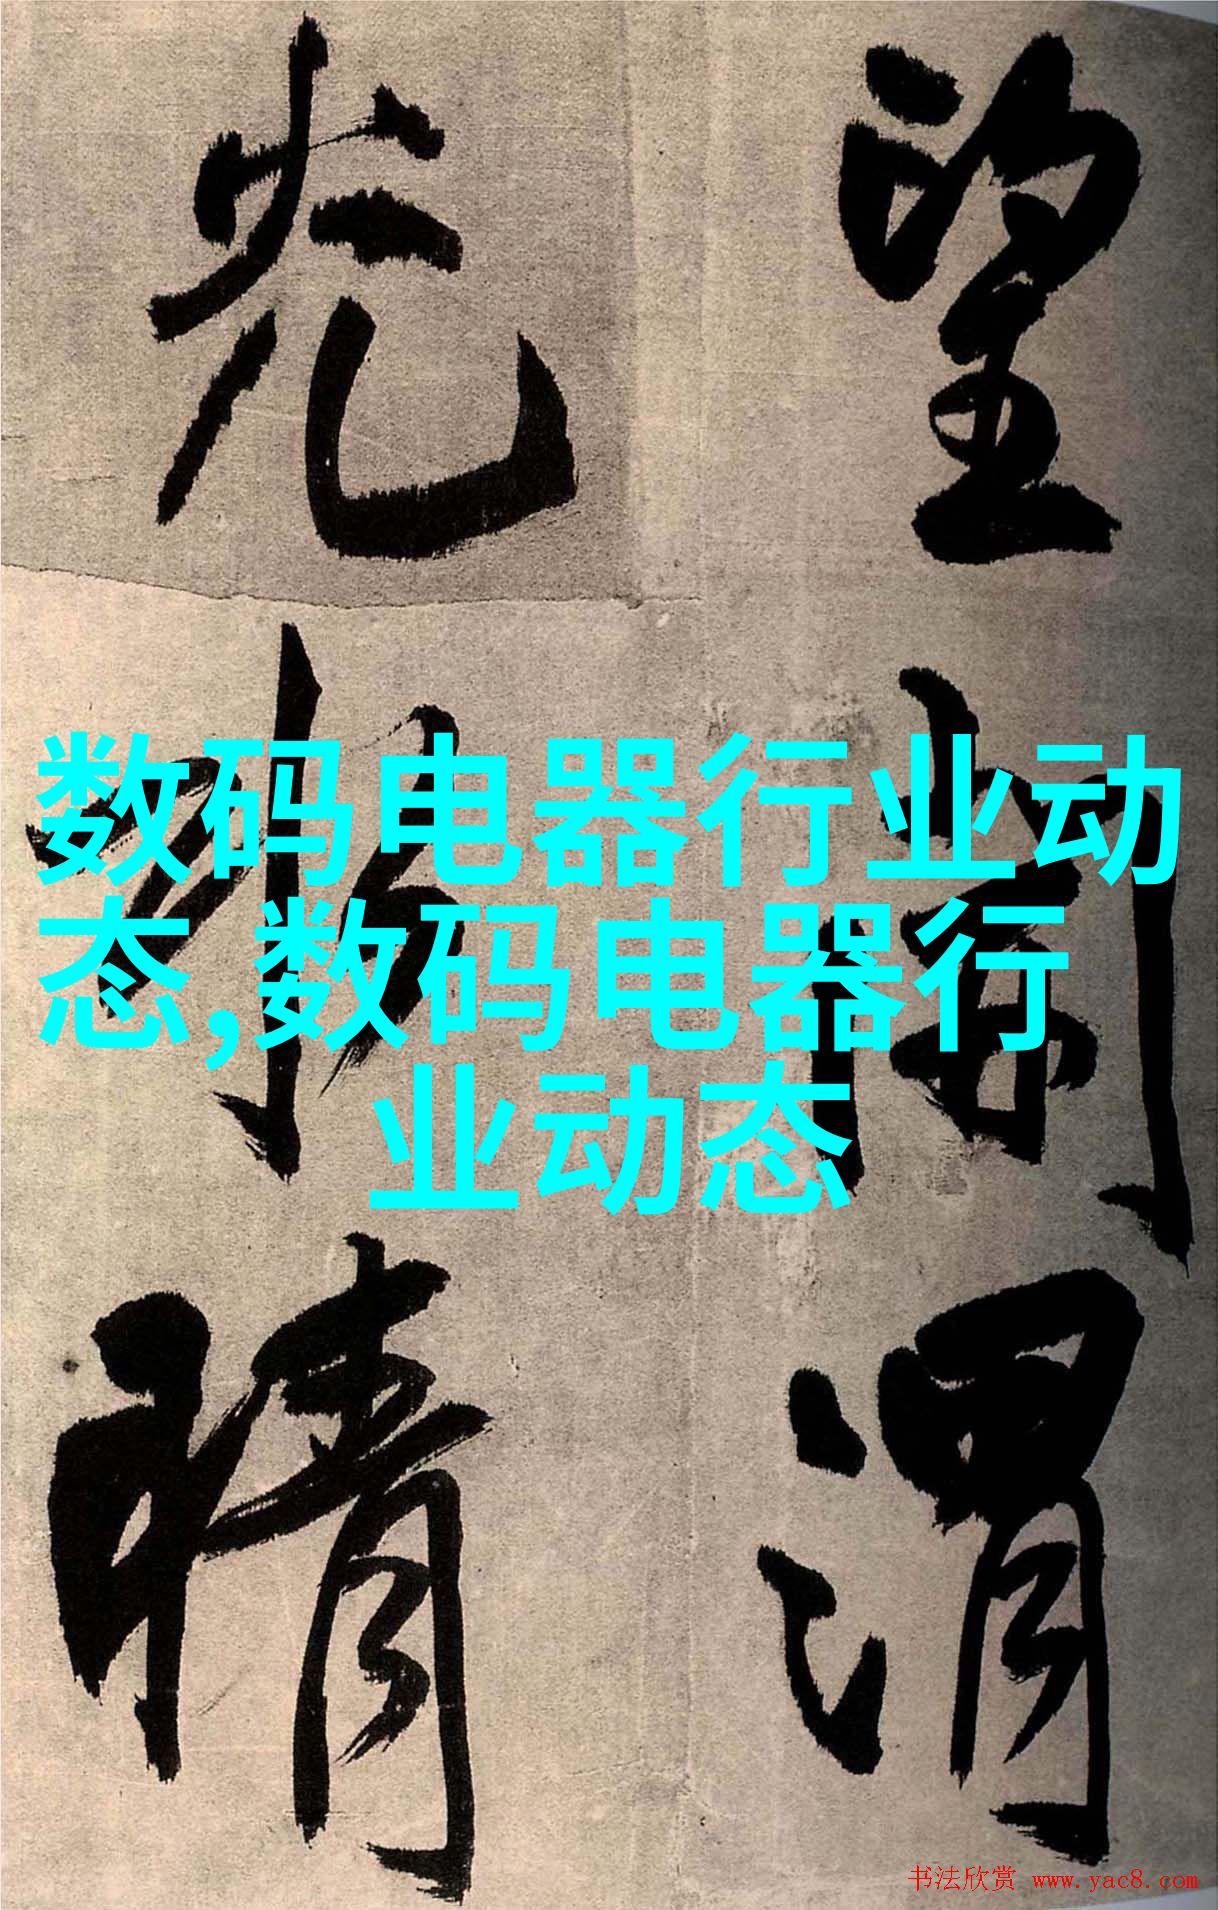 望開渭
光物晴
数码电器行业动
态,数码电器行
业动态
书法欣赏 www.yac8.com